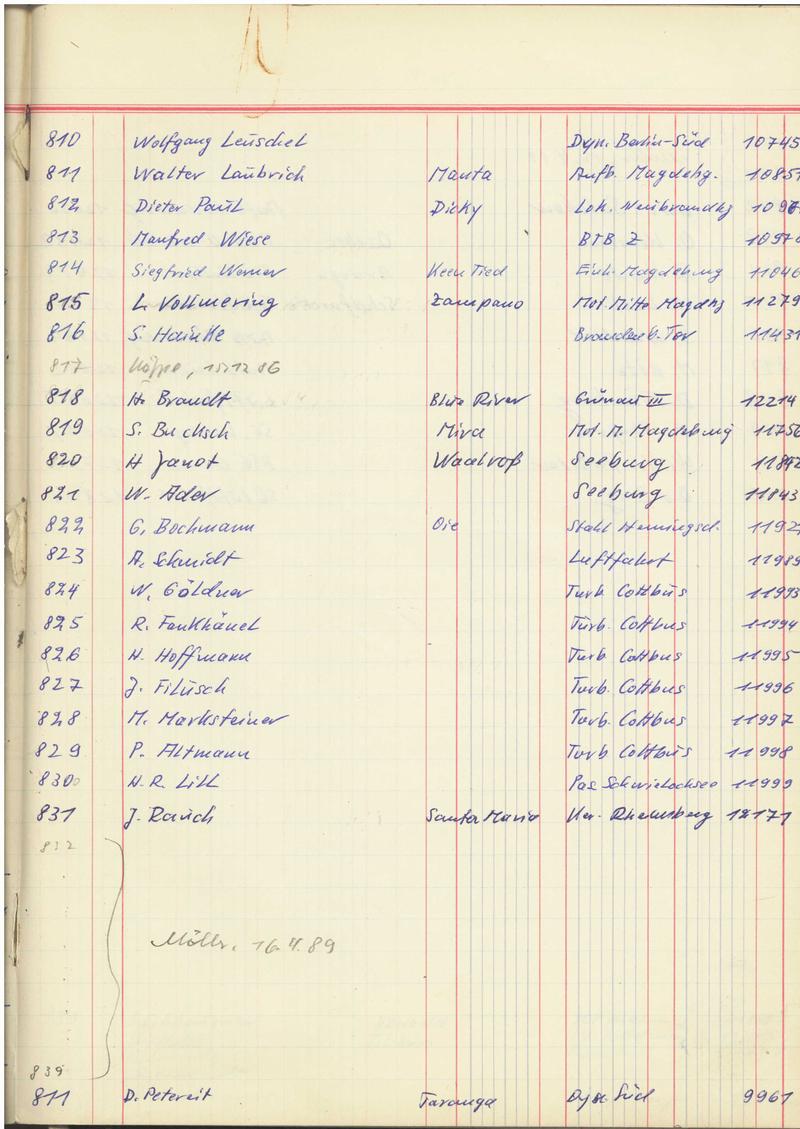 810 Wolfgang Leuschel Dyn. Berlin-Süd 10745
811 Walter Laubrich Manta Aufb. Magdebg. 10857
812 Dieter Paul Dicky Lok. Neubrandbg
813 Manfred Wiese BTB Z 1097
814 Siegfried Werner Keen Tied Einh. Magdeburg 11046
815 L. Vollmering Zampano Mot. Mitte Magdbg 11279
816 S. Hainke Brandenb. Tor 11431
817 Köppe, 15.12.86
818 H. Brandt Blue River Grünau III 12214
819 S. Bucksch Mira Mot. M. Magdeburg 11756
820 H. Janot Waalroß Seeburg 11842
821 W. Ader Seeburg 11843
822 G. Bochmann Oie Stahl Henningsd. 1192
823 A. Schmidt Luftfahrt 11989
824 W. Göldner Turb. Cottbus 11993
825 R. Fankhänel Turb. Cottbus 11994
826 H. Hoffmann Turb. Cottbus 11995
827 J. Filusch Turb. Cottbus 11996
828 M. Marksteiner Turb. Cottbus 11997
829 P. Altmann Turb. Cottbus 11998
830 H. R. Lill Schwielochsee 11999
831 J. Rauch Santa Maria Rheinsberg 12171
832
16.11.89
839
811 D. Petereit Taranga Süd 9961